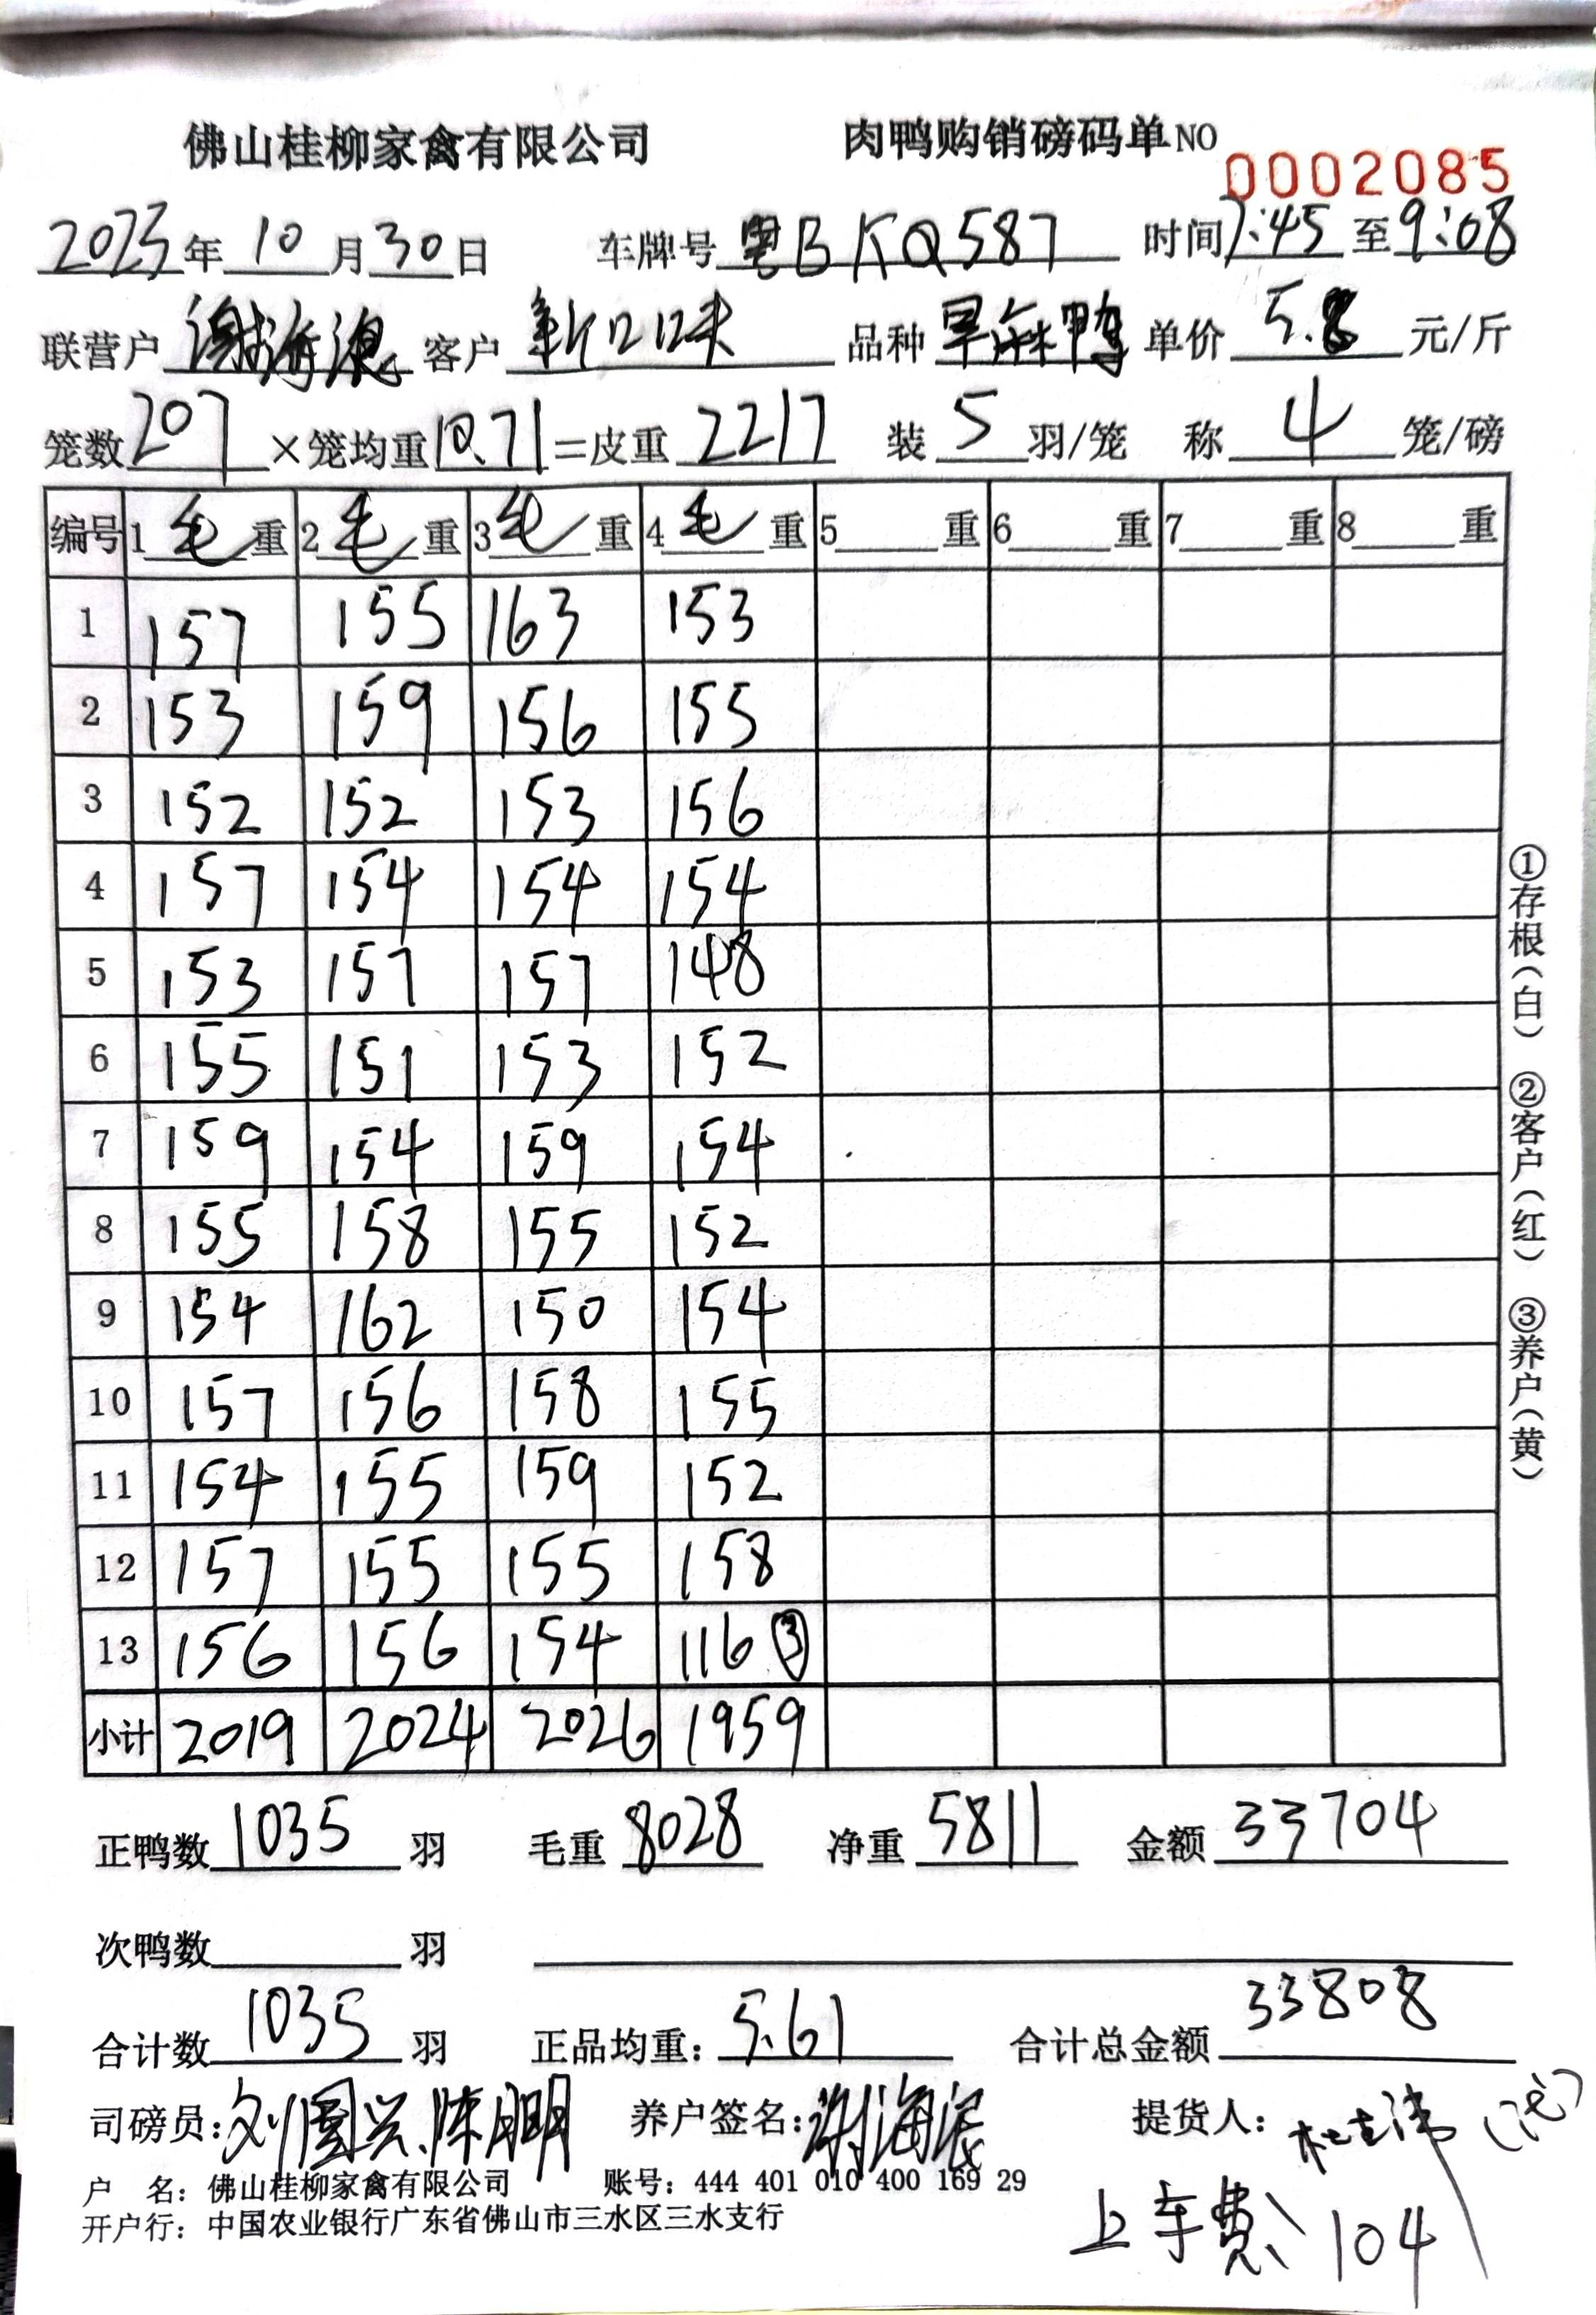 佛山桂柳家禽有限公司 肉鸭购销磅码单NO 0002085
2023年10月30日 车牌号 粤BKQ587 时间7:45至9:08
联营户 谢海 客户 新口味 品种 旱麻鸭 单价 5.8 元/斤
笼数207×笼均重10.71=皮重2217 装5羽/笼 称4笼/磅
编号 1毛重 2毛重 3毛重 4毛重 5重 6重 7重 8重
1 157 155 163 153
2 153 159 156 155
3 152 152 153 156
4 157 154 154 154
5 153 157 157 148
6 155 151 153 152
7 159 154 159 154
8 155 158 155 152
9 154 162 150 154
10 157 156 158 155
11 154 155 159 152
12 157 155 155 158
13 156 156 154 116③
小计 2019 2024 2026 1959
正鸭数1035羽 毛重8028 净重5811 金额33704
次鸭数 羽
合计数1035羽 正品均重：5.61 合计总金额33808
司磅员：刘国兴.陈明 养户签名：谢海 提货人：杜
户 名：佛山桂柳家禽有限公司 账号：444 401 010 400 169 29
开户行：中国农业银行广东省佛山市三水区三水支行
上车费：104
①存根（白） ②客户（红） ③养户（黄）